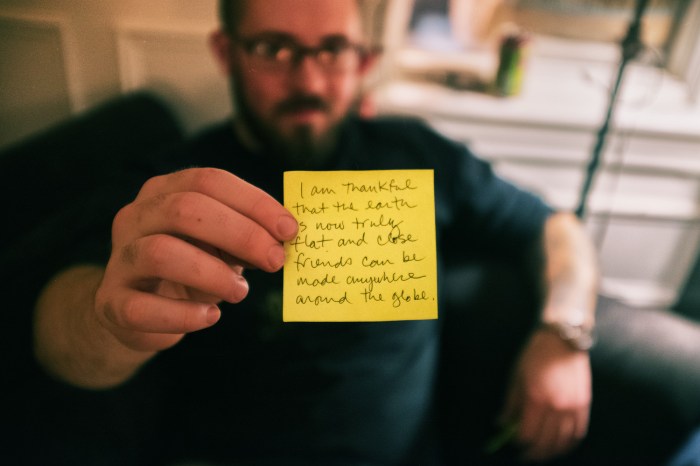 I am thankful
that the earth
is now truly
flat and close
friends can be
made anywhere
around the globe.